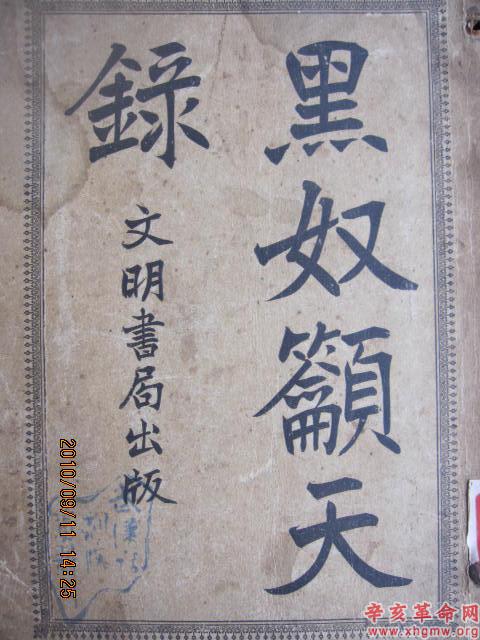 黑奴籲天
錄
文明書局出版
2010/09/11 14:25
辛亥革命网
www.xhgmw.org